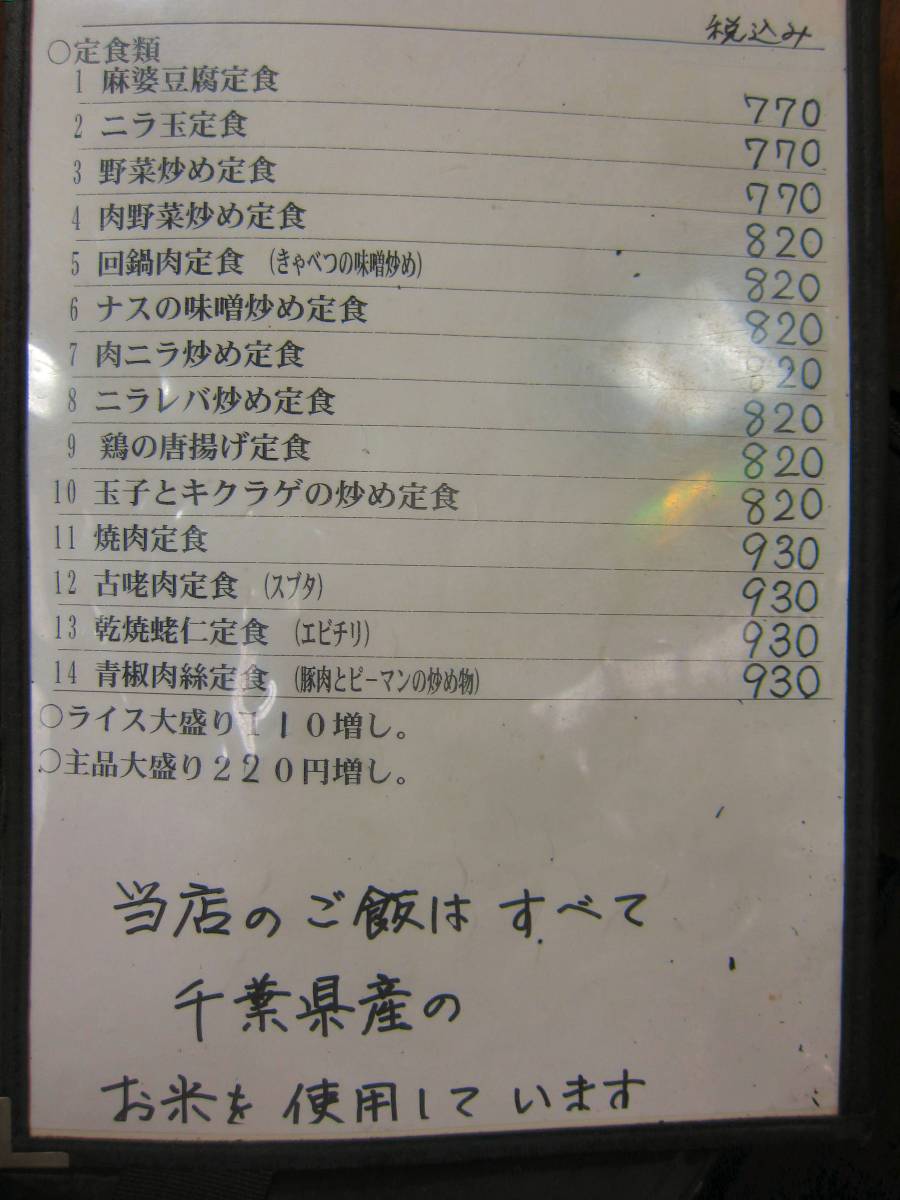 税込み
○定食類
1 麻婆豆腐定食 770
2 ニラ玉定食 770
3 野菜炒め定食 770
4 肉野菜炒め定食 820
5 回鍋肉定食 (きゃべつの味噌炒め) 820
6 ナスの味噌炒め定食 820
7 肉ニラ炒め定食 820
8 ニラレバ炒め定食 820
9 鶏の唐揚げ定食 820
10 玉子とキクラゲの炒め定食 820
11 焼肉定食 930
12 古咾肉定食 (スブタ) 930
13 乾焼蛯仁定食 (エビチリ) 930
14 青椒肉絲定食 (豚肉とピーマンの炒め物) 930
○ライス大盛り110増し。
○主品大盛り220円増し。
当店のご飯はすべて
千葉県産の
お米を使用しています